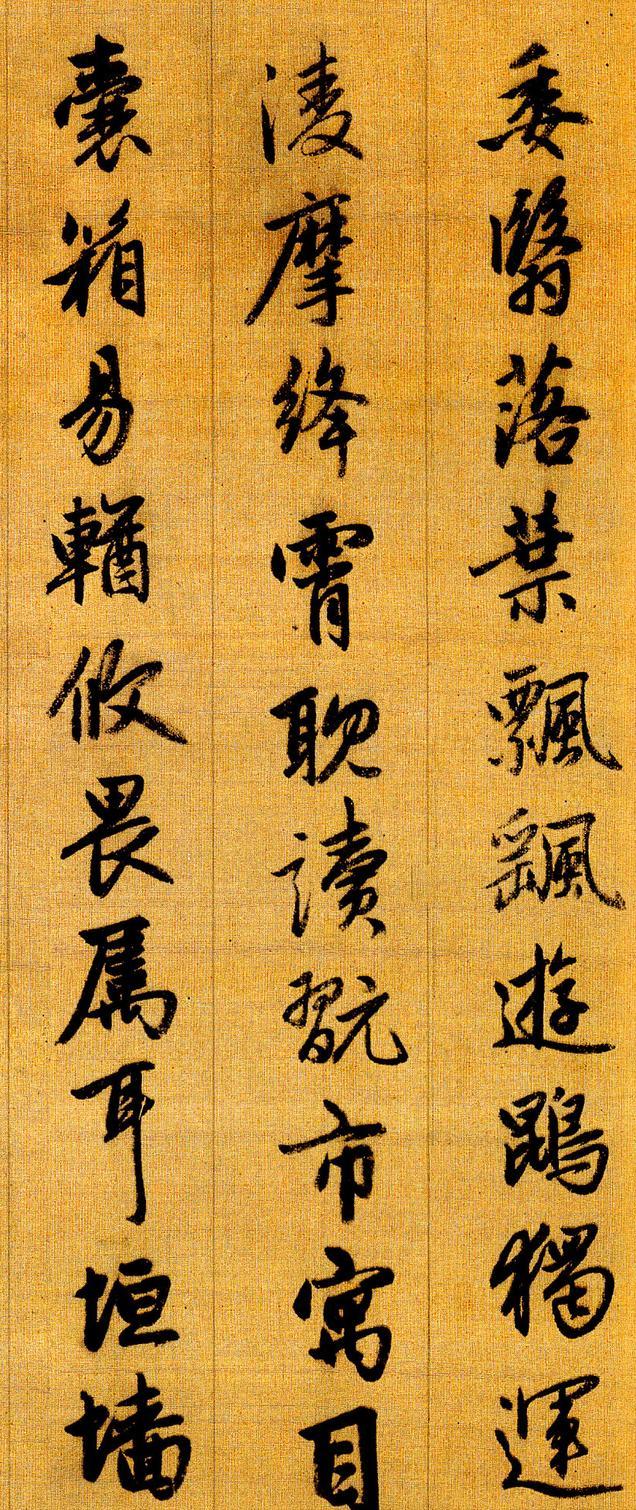 委翳落葉飄颻遊鵾獨運
凌摩絳霄耽讀翫市寓目
囊箱易輶攸畏属耳垣墙